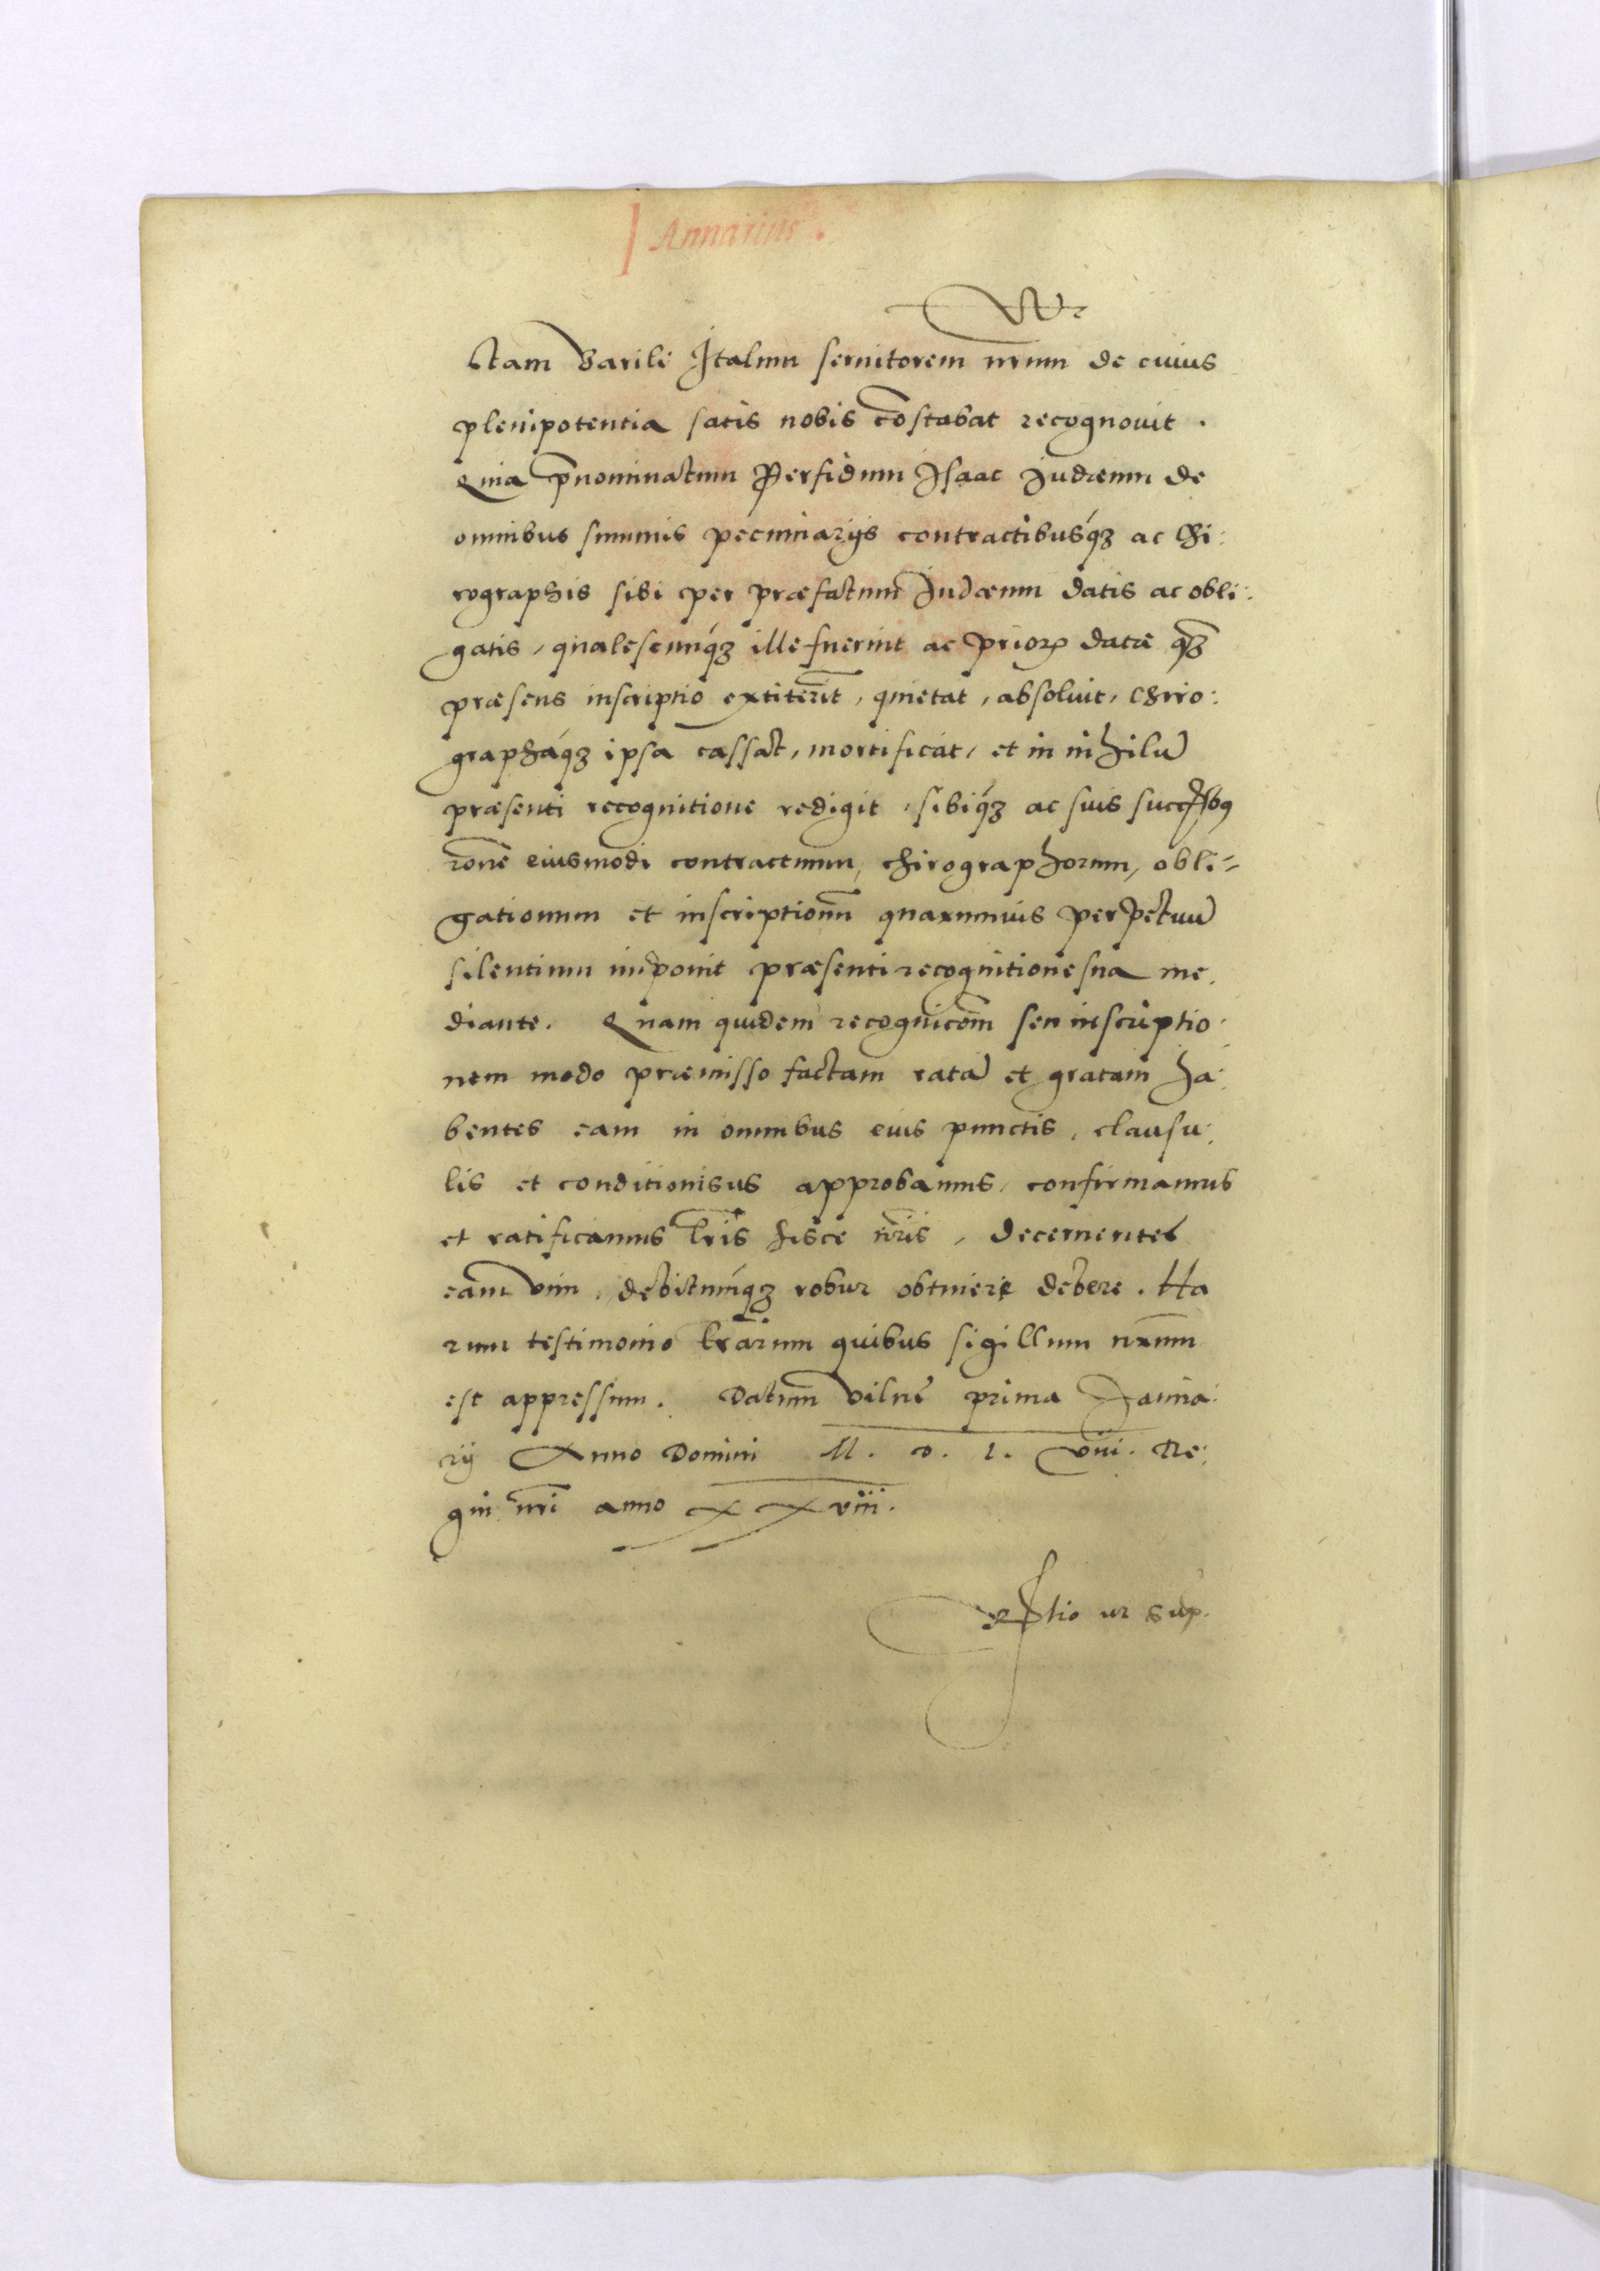 Annarius.
ctam Barili Italum seruitorem nrum de cuius
plenipotentia satis nobis costabat recognouit.
Quia pnominatum Perfidum Isaac Iudæum de
omnibus summis pecuniarijs contractibusq3 ac chi:
rographis sibi per præfatum Iudæum datis ac obli:
gatis, qualescunq3 ille fuerint ac prior datæ q3
præsens inscriptio extiterit, quietat, absoluit, chiro:
graphaq3 ipsa cassat, mortificat, et in nihilu
præsenti recognitione redigit, sibiq3 ac suis
rone eiusmodi contractuum, chirographorum, obli=
gationum et inscriptionu quarumuis perpetuu
silentium imponit præsenti recognitione sua me.
diante. Quam quidem recognicoem seu inscriptio:
nem modo præmisso factam rata et gratam ha:
bentes eam in omnibus eius punctis, clausu:
lis et conditionibus approbamus, confirmamus
et ratificamus lris hisce nris, decernentes
eam vim, debitumq3 robur obtinere debere. Ha
rum testimonio lrarum quibus sigillum nrum
est appressum. Datum Vilnę prima Janua:
rij Anno Domini M. D. L. VIII. Re:
gni nri anno XXviii.
ut sup.